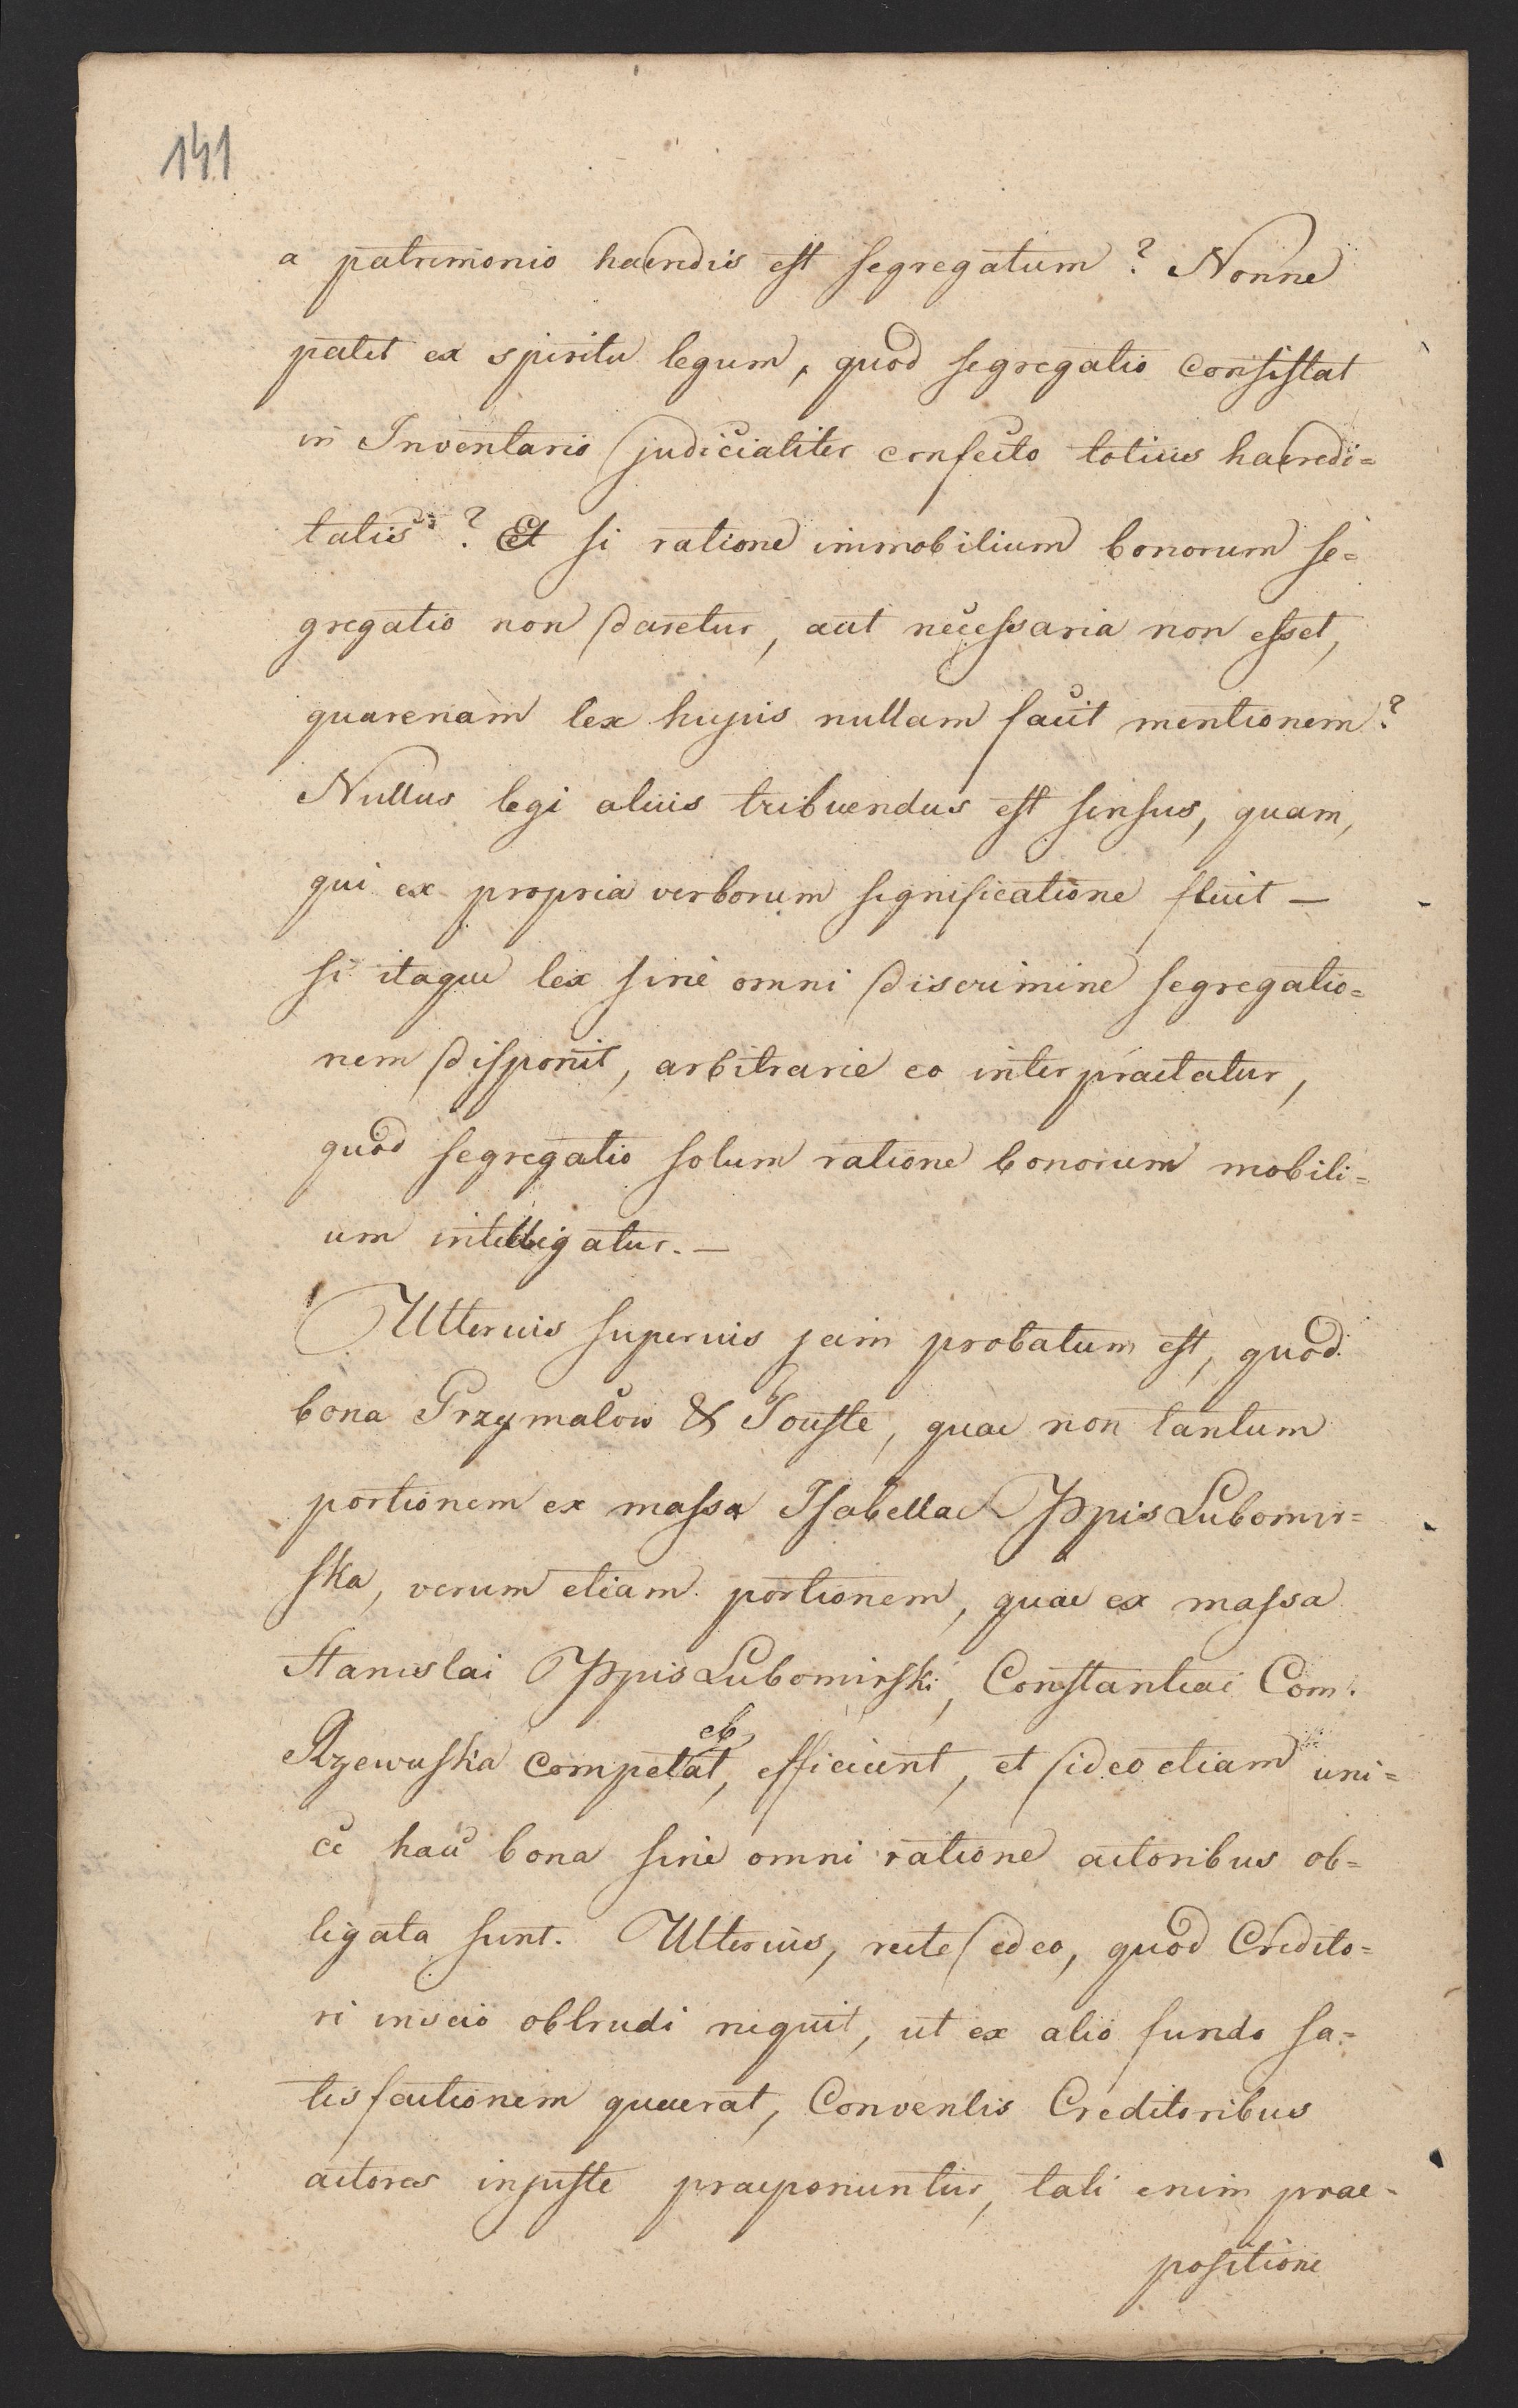 141
a patrimonio haeredis est segregatum? Nonne
patet ex spiritu legum, quod segregatio consistat
in Inventario judicialiter confecto totius haeredi=
tatis? Et si ratione immobilium bonorum se=
gregatio non daretur, aut necessaria non esset,
quarenam lex hujus nullam facit mentionem?
Nullus legi alius tribuendus est sensus, quam,
qui ex propria verborum significatione fluit —
si itaque lex sine omni discrimine segregatio=
nem disponit, arbitrarie eo interpraetatur,
quod segregatio solum ratione bonorum mobili=
um intelligatur. —
Ulterius superius jam probatum est, quod
bona Grzymałow & Touste, quae non tantum
portionem ex massa Isabellae Ppis Lubomir=
ska, verum etiam portionem, quae ex massa
Stanislai Ppis Lubomirski, Constantiae Com.
Rzewuska competat, efficiunt, et ideo etiam uni=
ce haec bona sine omni ratione actoribus ob=
ligata sunt. Ulterius, recte ideo, quod Credito=
ri inscio obtrudi nequit, ut ex alio fundo sa=
tisfactionem quaerat, Conventis Creditoribus
actores injuste praeponuntur, tali enim prae=
positione